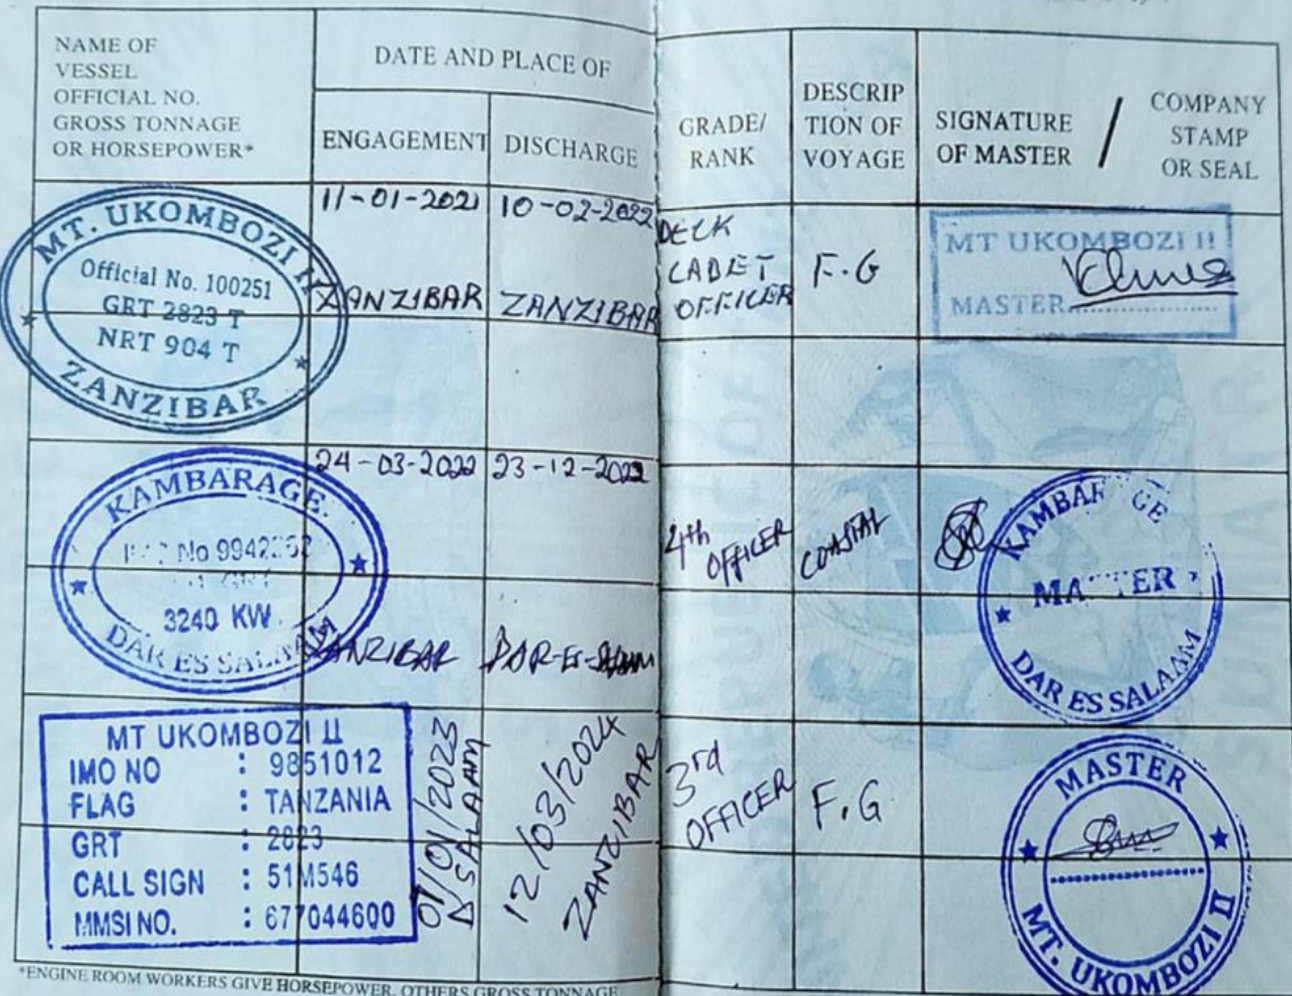 NAME OF
VESSEL
OFFICIAL NO.
GROSS TONNAGE
OR HORSEPOWER*
DATE AND PLACE OF
ENGAGEMENT
DISCHARGE
GRADE/
RANK
DESCRIP
TION OF
VOYAGE
SIGNATURE
OF MASTER
/
COMPANY
STAMP
OR SEAL
MT. UKOMBOZI II
Official No. 100251
GRT 2823 T
NRT 904 T
ZANZIBAR
11-01-2021
ZANZIBAR
10-02-2022
ZANZIBAR
DECK
CADET
OFFICER
F.G
MT UKOMBOZI II
MASTER
KAMBARAGE
No 9942
3240 KW
DAR ES SALAAM
24-03-2022
ZANZIBAR
23-12-2022
DAR-ES-SALAAM
4th
OFFICER
COASTAL
KAMBARAGE
MASTER
DAR ES SALAAM
MT UKOMBOZI II
IMO NO : 9851012
FLAG : TANZANIA
GRT : 2823
CALL SIGN : 51M546
MMSI NO. : 677044600
01/2023
D'SALAAM
12/03/2024
ZANZIBAR
3rd
OFFICER
F.G
MASTER
MT. UKOMBOZI II
*ENGINE ROOM WORKERS GIVE HORSEPOWER, OTHERS GROSS TONNAGE